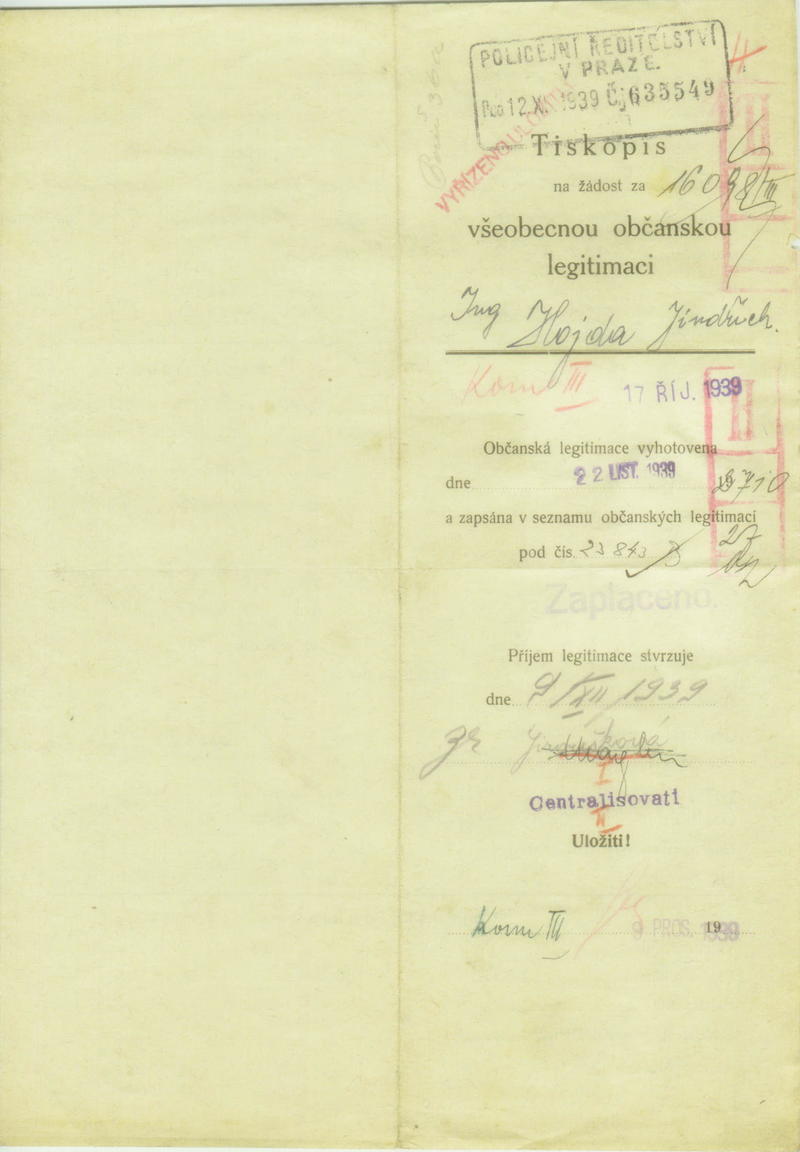 POLICEJNÍ ŘEDITELSTVÍ
V PRAZE.
12.X. 1939 Čj 635549
VYŘÍZENO
Tiskopis
na žádost za
všeobecnou občanskou
legitimaci
Ing Hojda Jindřich.
Kom III
17 ŘÍJ. 1939
II
Občanská legitimace vyhotovena
dne 22 LIST. 1939 19
a zapsána v seznamu občanských legitimací
27
pod čís. 23 843
Zaplaceno.
Příjem legitimace stvrzuje
dne 9/XII 1939
Centralisovati
Uložiti!
Kom III 9 PROS. 1939 19